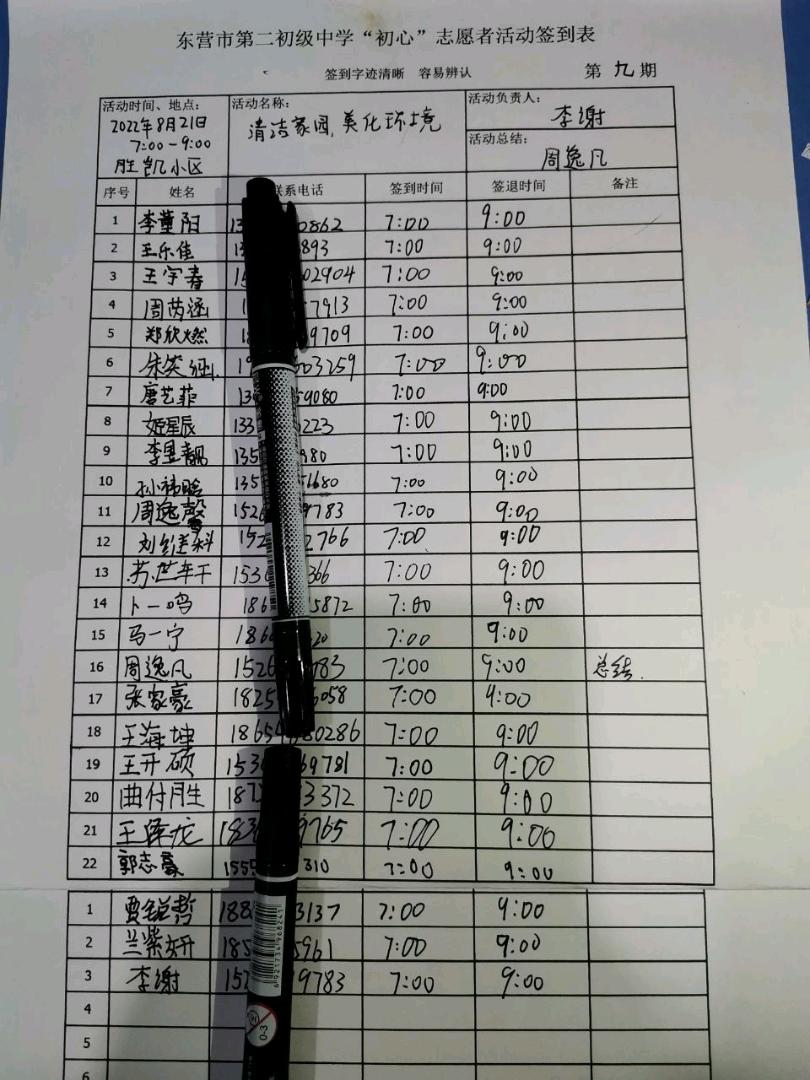 东营市第二初级中学“初心”志愿者活动签到表
签到字迹清晰 容易辨认 第九期
活动时间、地点: 活动名称: 活动负责人:
2022年8月21日 清洁家园,美化环境 李谢
7:00-9:00 活动总结:
胜凯小区 周逸凡
序号 姓名 联系电话 签到时间 签退时间 备注
1 李董阳 0862 7:00 9:00
2 王乐佳 893 7:00 9:00
3 王宇春 02904 7:00 9:00
4 周芮涵 7913 7:00 9:00
5 郑欣燃 9709 7:00 9:00
6 603259 7:00 9:00
7 唐艺菲 59080 7:00 9:00
8 姬星辰 133 223 7:00 9:00
9 李昱靓 135 980 7:00 9:00
10 135 51680 7:00 9:00
11 周逸馨 1526 9783 7:00 9:00
12 152 2766 7:00 9:00
13 153 366 7:00 9:00
14 卜一鸣 186 5872 7:00 9:00
15 马一宁 186 20 7:00 9:00
16 周逸凡 1526 083 7:00 9:00 总结.
17 张家豪 1825 6058 7:00 9:00
18 王海坤 18654 80286 7:00 9:00
19 王开硕 153 69781 7:00 9:00
20 曲付月生 187 3372 7:00 9:00
21 王泽龙 183 9765 7:00 9:00
22 郭志豪 1555 310 7:00 9:00
1 贾锐哲 188 3137 7:00 9:00
2 兰紫妍 185 5961 7:00 9:00
3 李谢 152 9783 7:00 9:00
4
5
6
6921734968241
0-3